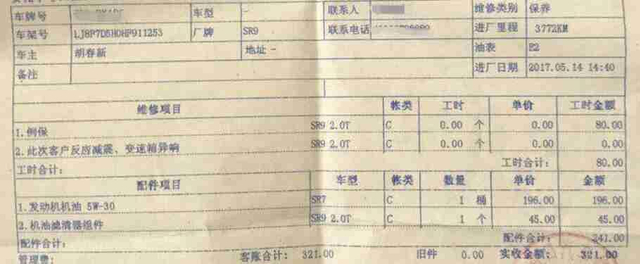 车牌号 车型 - 联系人 维修类别 保养
车架号 LJ8P7D5H0HP911253 厂牌 SR9 联系电话 进厂里程 3772KM
车主 胡春新 地址 - 油表 E2
备注 进厂日期 2017.05.14 14:40
维修项目 帐类 工时 单价 工时金额
1.例保 SR9 2.0T C 0.00 个 0.00 80.00
2.此次客户反应减震、变速箱异响 SR9 2.0T C 0.00 个 0.00 0.00
工时合计: 工时合计: 80.00
配件项目 车型 帐类 数量 单价 金额
1.发动机机油 5W-30 SR7 C 1 桶 196.00 196.00
2.机油滤清器组件 SR9 2.0T C 1 个 45.00 45.00
配件合计: 配件合计: 241.00
管理费: 客账合计: 321.00 旧件 0.00 实收金额: 321.00